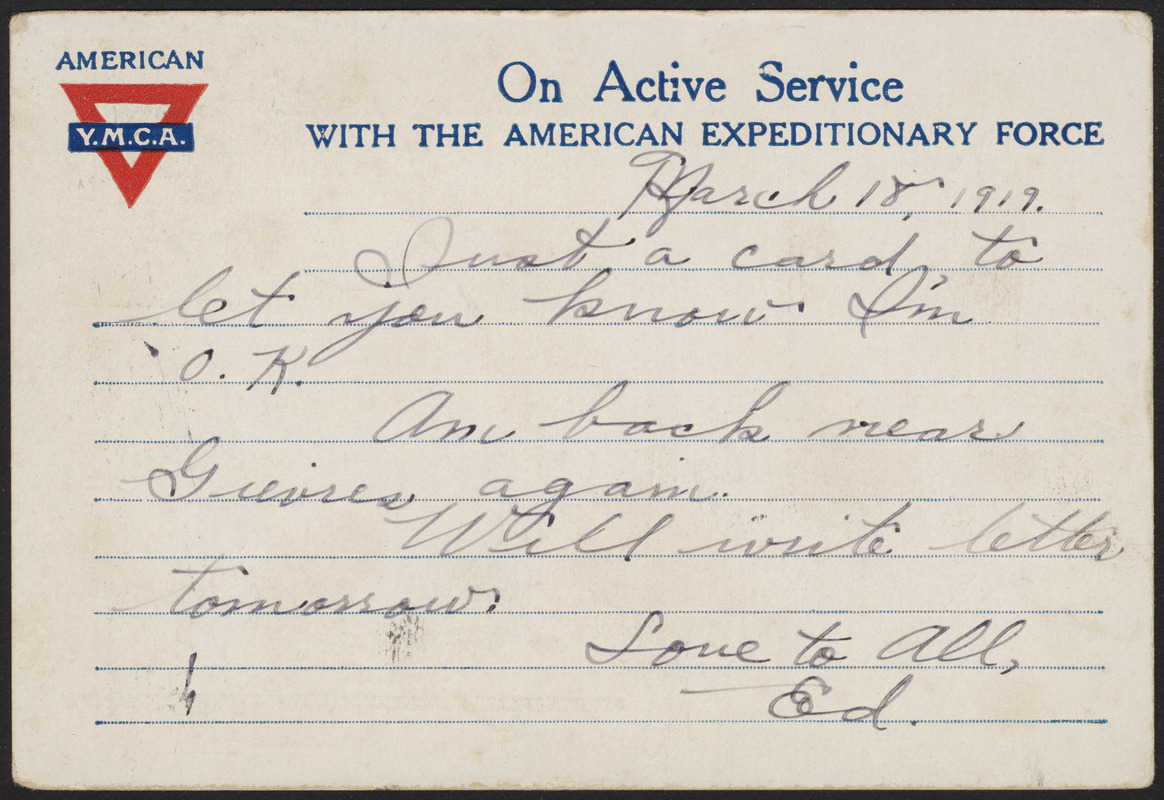 AMERICAN
Y.M.C.A.
On Active Service
WITH THE AMERICAN EXPEDITIONARY FORCE
March 18, 1919.
Just a card, to
let you know I'm
O. K.
Am back near
Gievres again.
Will write letter
tomorrow.
Love to All,
Ed.